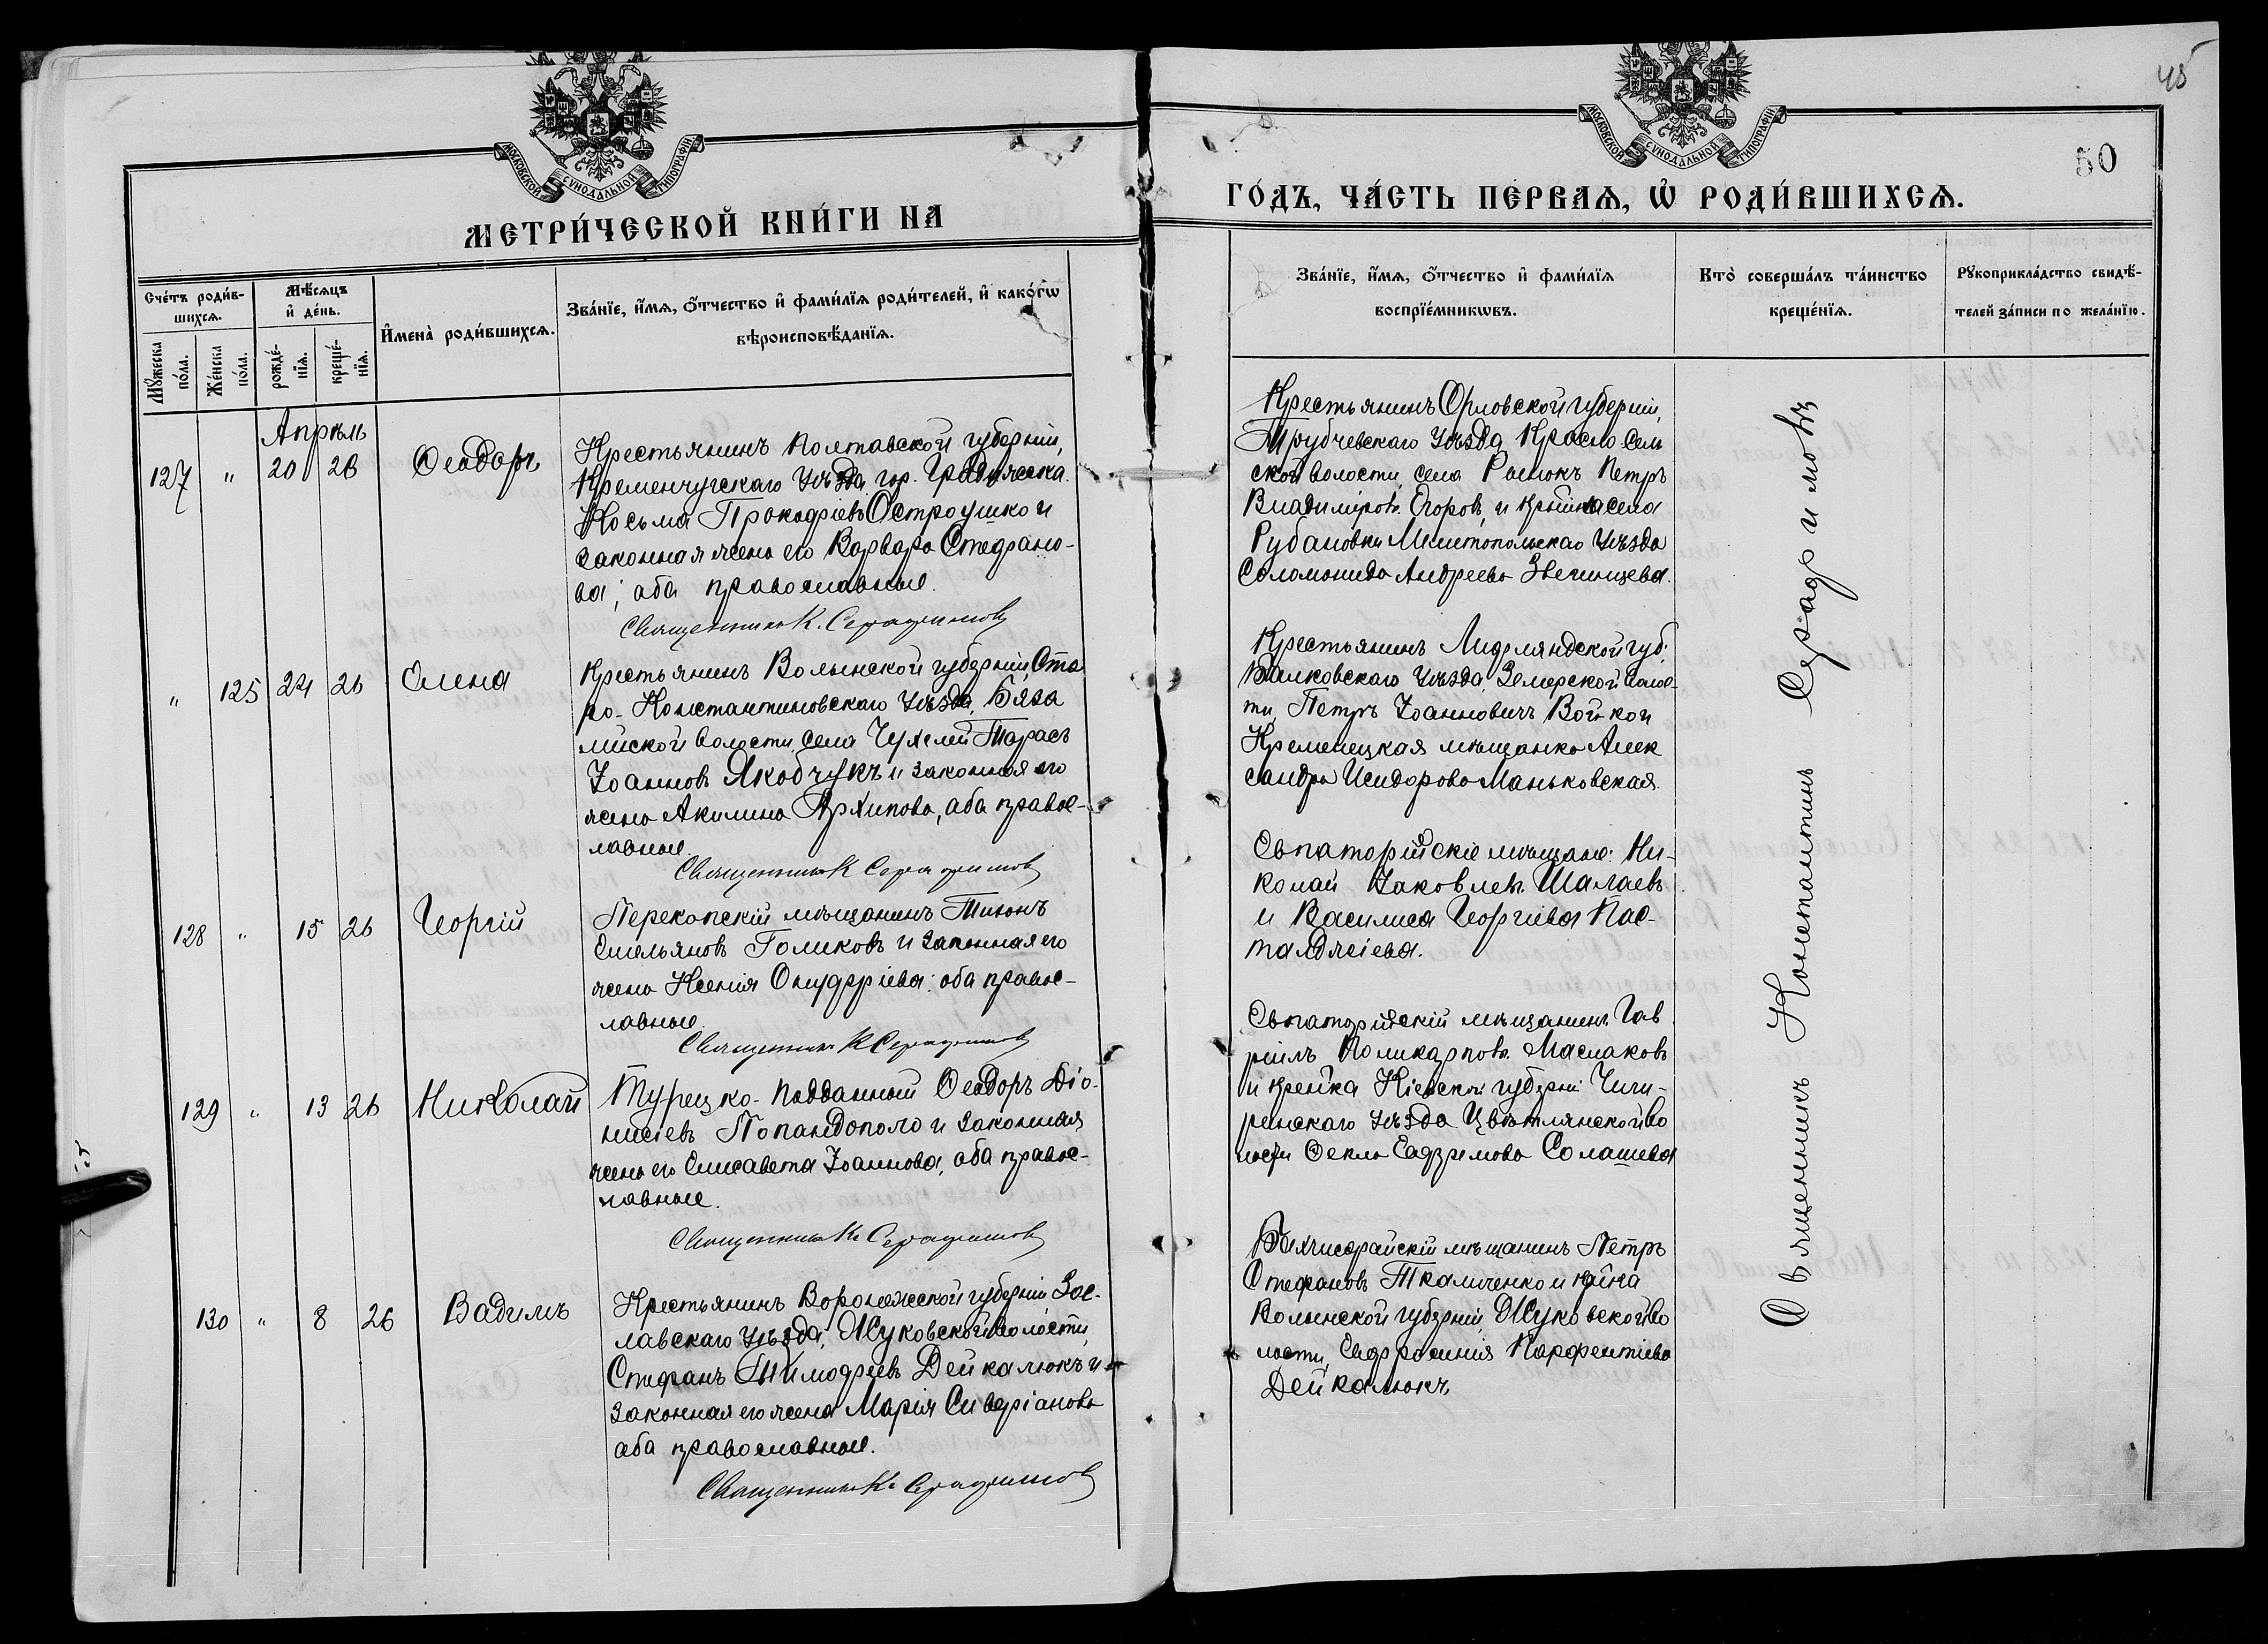 МОСКОВСКОЙ СѴНОДАЛЬНОЙ ТИПОГРАФІИ
МЕТРИ́ЧЕСКОЙ КНИ́ГИ НА
Сче́тъ роди́в-
шихсѧ.
Мꙋ́жеска
по́ла.
Же́нска
по́ла.
Мѣ́сѧцъ
и҆ де́нь.
рожде́-
нїѧ.
креще́-
нїѧ.
И҆мена̀ роди́вшихсѧ.
Зва́нїе, и҆́мѧ, ѻ҆́тчество и҆ фами́лїѧ роди́телей, и҆ како́гѡ
вѣроисповѣ́данїѧ.
Апрѣль
127 " 20 26 Ѳеодоръ
Крестьянинъ Полтавской губерніи,
Кременчугскаго уѣзда, гор. Градижска
Косьма Прокофіевъ Остроушко и
законная жена его Варвара Стефано-
ва; оба православные.
Священникъ К. Серафимовъ
" 125 24 26 Елена
Крестьянинъ Волынской губерніи, Ста
ро-Константиновскаго уѣзда,
волости, села Чухелей Тарасъ
Іоанновъ Якобчукъ и законная его
жена Акилина Архипова, оба правос-
лавные.
Священникъ К Серафимовъ
128 " 15 26 Георгій
Перекопскій мѣщанинъ Тихонъ
Емельяновъ Голиковъ и законная его
жена Ксенія Онуфріева: оба правос-
лавные.
Священникъ К Серафимовъ
129 " 13 26 Николай
Турецко-подданный Ѳеодоръ Діо-
нисіевъ Попандополо и законная
жена его Елисавета Іоаннова, оба правос-
лавные.
Священникъ К. Серафимовъ
130 " 8 26 Вадимъ
Крестьянинъ Воронежской губерніи Зас-
лавскаго уѣзда, Жуковской волости,
Стефанъ Тимофеевъ Дейкалюкъ и
законная его жена Марія Сиверіанова
оба православные.
Священникъ К. Серафимовъ
45
50
МОСКОВСКОЙ СѴНОДАЛЬНОЙ ТИПОГРАФІИ
ГО́ДЪ, ЧА́СТЬ ПЕ́РВАѦ, Ѽ РОДИ́ВШИХСѦ.
Зва́нїе, и҆́мѧ, ѻ҆́тчество и҆ фами́лїѧ
воспрїе́мникѡвъ.
Кто̀ соверша́лъ та́инство
креще́нїѧ.
Рꙋкоприкла́дство свидѣ́-
телей за́писи по жела́нїю.
Крестьянинъ Орловской губерніи,
Трубчевскаго уѣзда, Красно Сель
ской волости, села Рыжокъ Петръ
Владиміровъ Егоровъ, и кр-нка села
Рубановки Мелитопольскаго уѣзда
Соломонида Андреева Звегинцева.
Крестьянинъ Лифляндской губ.
Валковскаго уѣзда, Земерской волос-
ти, Петръ Іоанновичъ Войко и
Кременецкая мѣщанка Алек
сандра Исидорова Маньковская.
Евпаторійскіе мѣщане: Ни-
колай Іаковлевъ Шалаевъ
и Василиса Георгіева Пас-
талджіева.
Евпаторійскій мѣщанинъ Гав
ріилъ Поликарповъ Маслаковъ
и кр-нка Кіевской губерніи Чиги-
ринскаго уѣзда Цвѣтлянской во
лости Ѳекла Ефремова Солашева
Бахчисарайскій мѣщанинъ Петръ
Стефановъ Ткаличенко и кр-нка
Волынской губерніи, Жуковской во
лости, Евфросинія Парфентіева
Дейкалюкъ
Священникъ Константинъ Серафимовъ